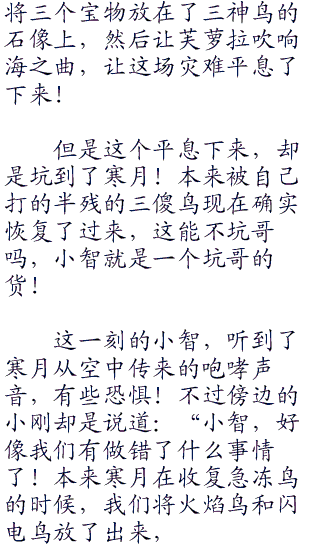 将三个宝物放在了三神鸟的
石像上，然后让芙萝拉吹响
海之曲，让这场灾难平息了
下来！
但是这个平息下来，却
是坑到了寒月！本来被自己
打的半残的三傻鸟现在确实
恢复了过来，这能不坑哥
吗，小智就是一个坑哥的
货！
这一刻的小智，听到了
寒月从空中传来的咆哮声
音，有些恐惧！不过傍边的
小刚却是说道：“小智，好
像我们有做错了什么事情
了！本来寒月在收复急冻鸟
的时候，我们将火焰鸟和闪
电鸟放了出来，